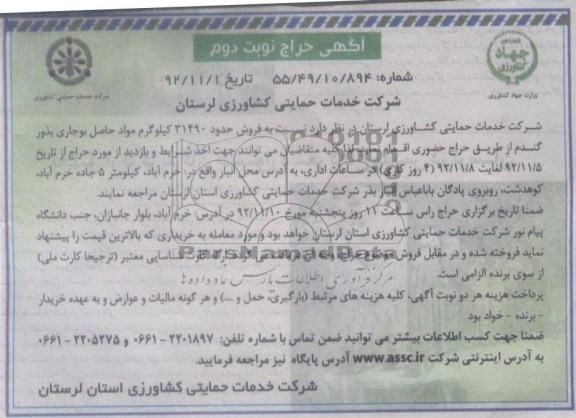 آگهی حراج نوبت دوم
جهاد کشاورزی
وزارت جهاد کشاورزی
شرکت خدمات حمایتی کشاورزی
شماره: ۵۵/۴۹/۱۰/۸۹۴ تاریخ ۹۲/۱۱/۱
شرکت خدمات حمایتی کشاورزی لرستان
شرکت خدمات حمایتی کشاورزی لرستان در نظر دارد نسبت به فروش حدود ۳۱۴۹۰ کیلوگرم مواد حاصل بوجاری بذور
گندم از طریق حراج حضوری اقدام نماید. لذا کلیه متقاضیان می توانند جهت اخذ شرایط و بازدید از مورد حراج از تاریخ
۹۲/۱۱/۵ لغایت ۹۲/۱۱/۸ (۴ روز کاری) در ساعات اداری، به آدرس محل انبار واقع در: خرم آباد، کیلومتر ۵ جاده خرم آباد،
کوهدشت، روبروی پادگان باباعباس انبار بذر شرکت خدمات حمایتی کشاورزی استان لرستان مراجعه نمایند.
ضمنا تاریخ برگزاری حراج راس ساعت ۱۱ روز پنجشنبه مورخ ۹۲/۱۱/۱۰ در آدرس: خرم آباد، بلوار جانبازان، جنب دانشگاه
پیام نور شرکت خدمات حمایتی کشاورزی استان لرستان خواهد بود و مورد معامله به خریداری که بالاترین قیمت را پیشنهاد
نماید فروخته شده و در مقابل فروش موضوع حراج، شناسایی معتبر (ترجیحا کارت ملی)
از سوی برنده الزامی است.
پرداخت هزینه هر دو نوبت آگهی، کلیه هزینه های مرتبط (بارگیری، حمل و ...) و هر گونه مالیات و عوارض و به عهده خریدار
- برنده - خواد بود
ضمنا جهت کسب اطلاعات بیشتر می توانید ضمن تماس با شماره تلفن: ۲۲۰۱۸۹۷-۰۶۶۱ و ۲۲۰۵۲۷۵-۰۶۶۱
به آدرس اینترنتی شرکت www.assc.ir آدرس پایگاه نیز مراجعه فرمایید.
شرکت خدمات حمایتی کشاورزی استان لرستان
ParsNamadData
مرکز فرآوری اطلاعات پارس نماد داده ها